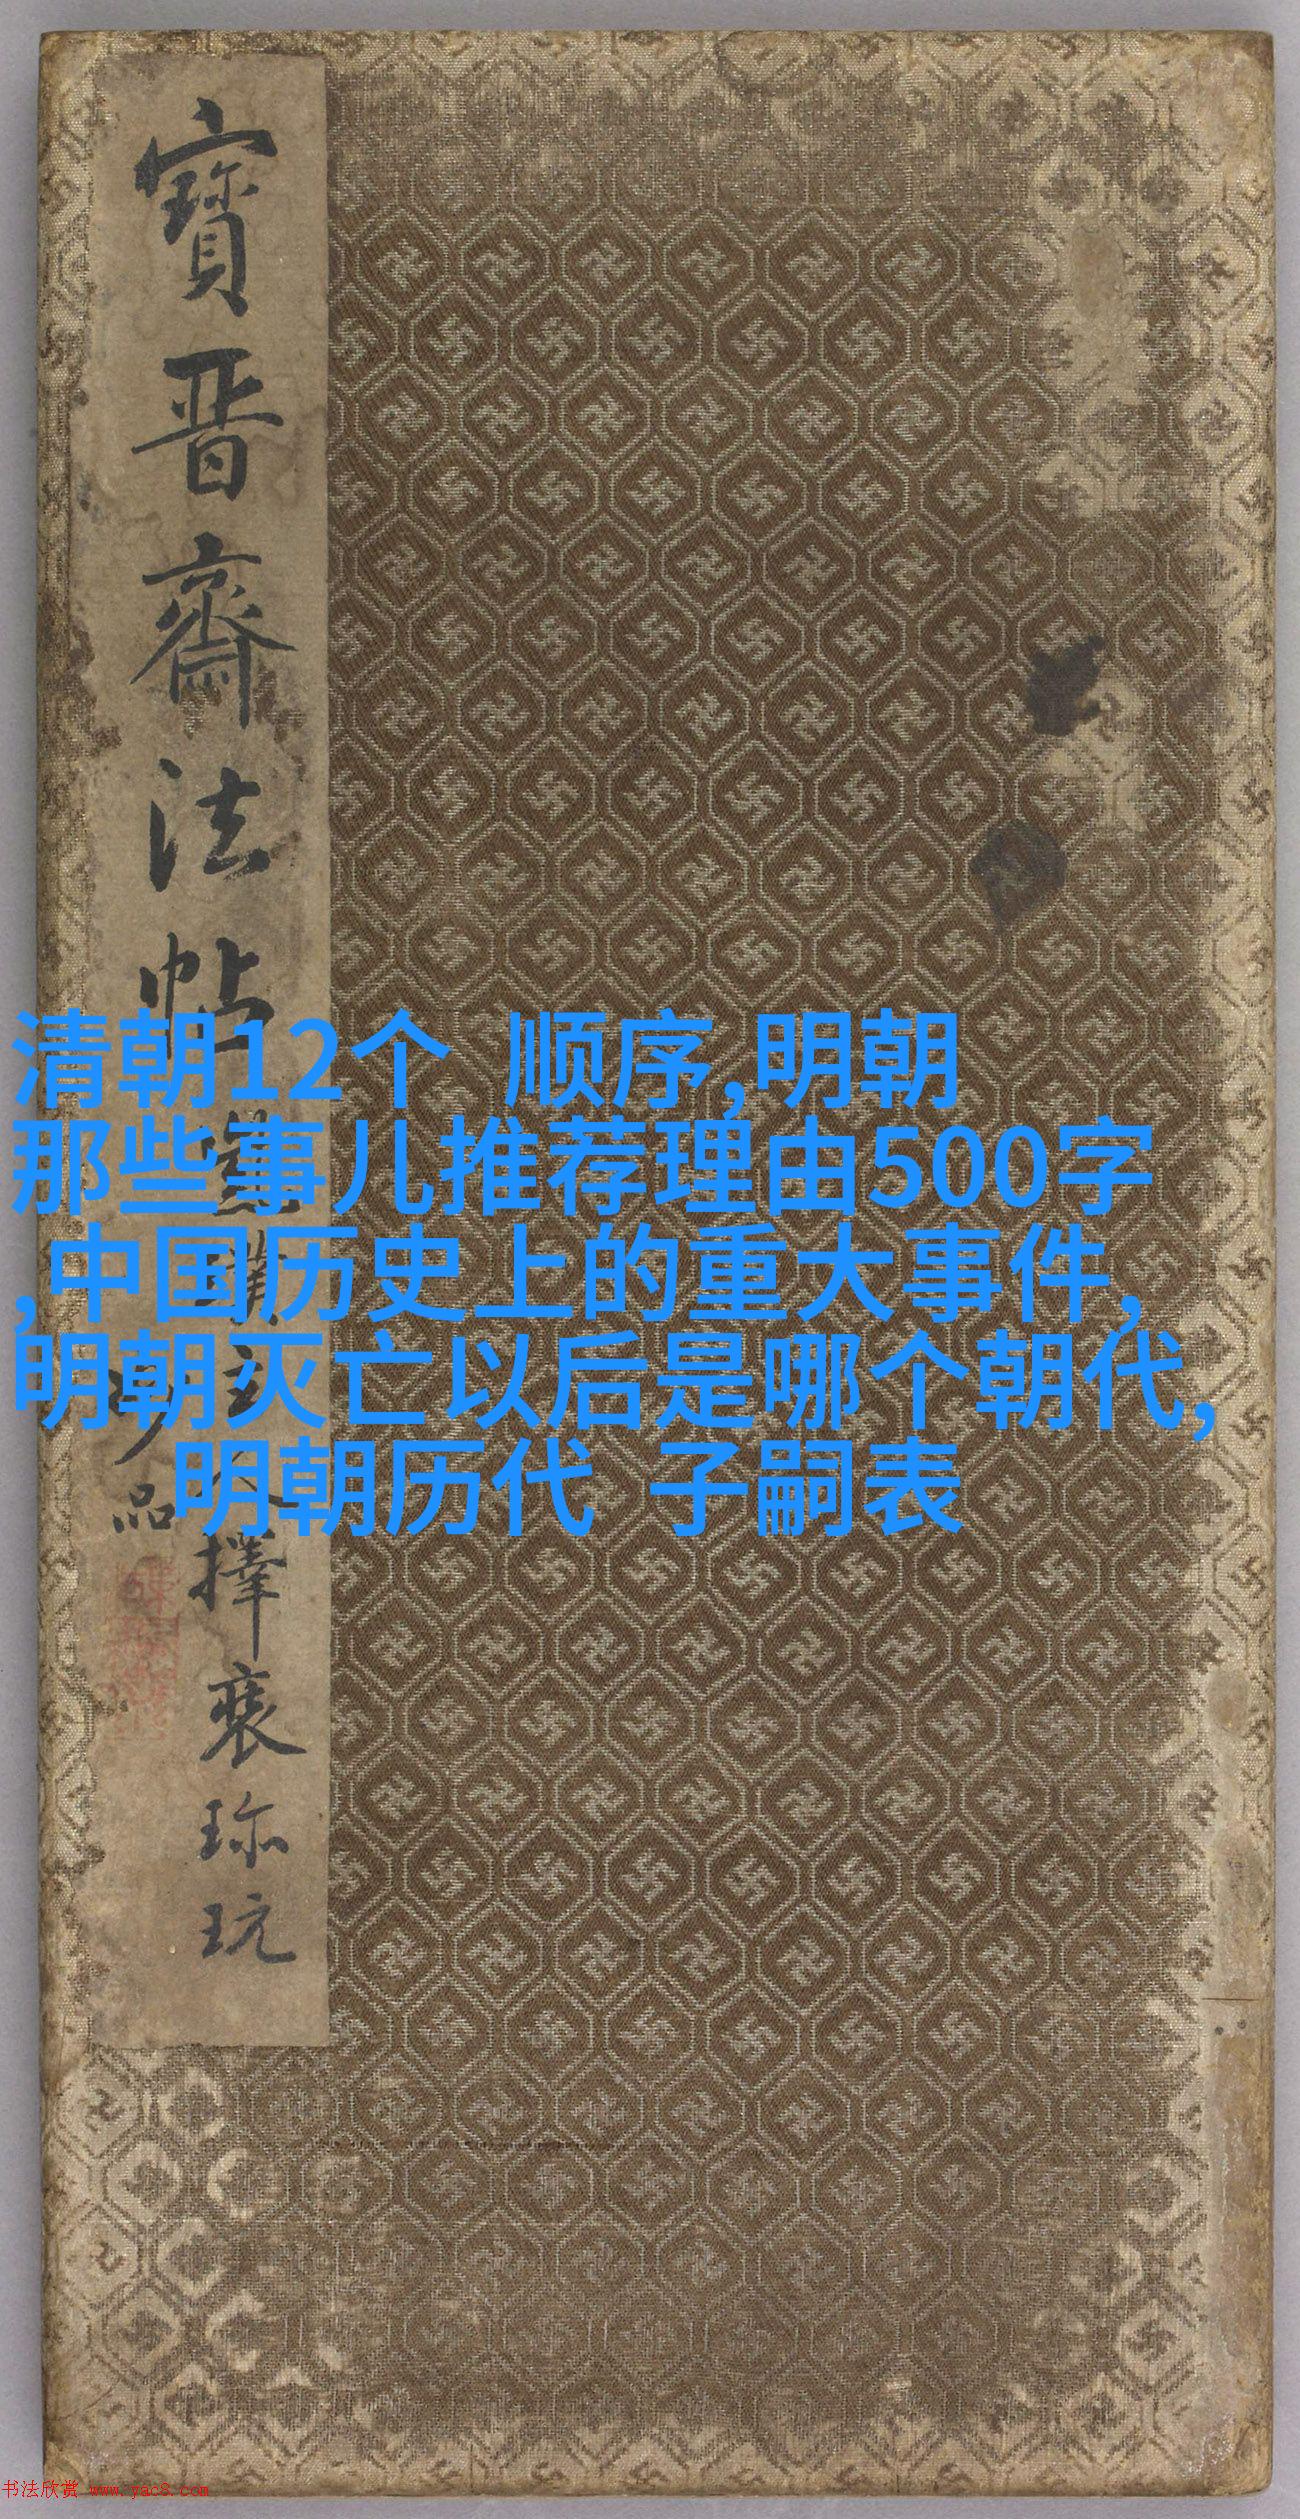 寶晉齋法帖
主
擇裘珎玩
品
清朝12个 顺序,明朝
那些事儿推荐理由500字
,中国历史上的重大事件,
明朝灭亡以后是哪个朝代,
明朝历代 子嗣表
书法欣赏 www.yac8.com